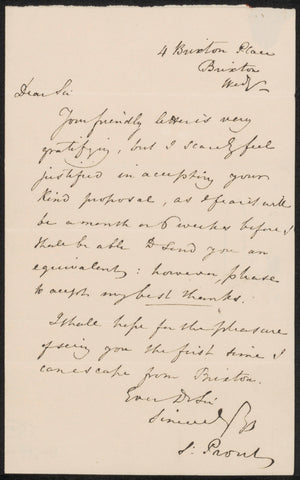 4 Brixton Place
Brixton
Wedy
Dear Sir
Your friendly letter is very
gratifying, but I scarcely feel
justified in accepting your
kind proposal, as I fear it will
be a month or 6 weeks before I
shall be able to send you an
equivalent: however, please
to accept my best thanks.
I shall hope for the pleasure
of seeing you the first time I
can escape from Brixton.
Ever Dr Sir
Sincerely Ys
S. Prout